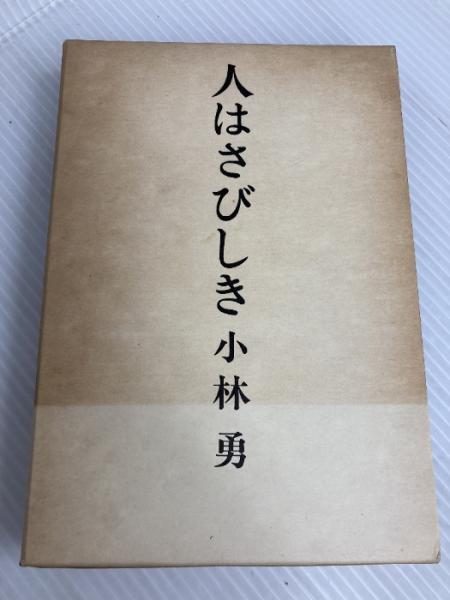 人はさびしき 小林 勇